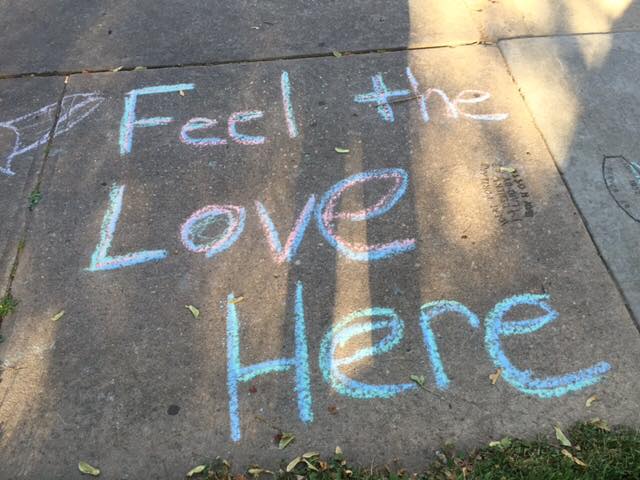 Feel the
Love
Here